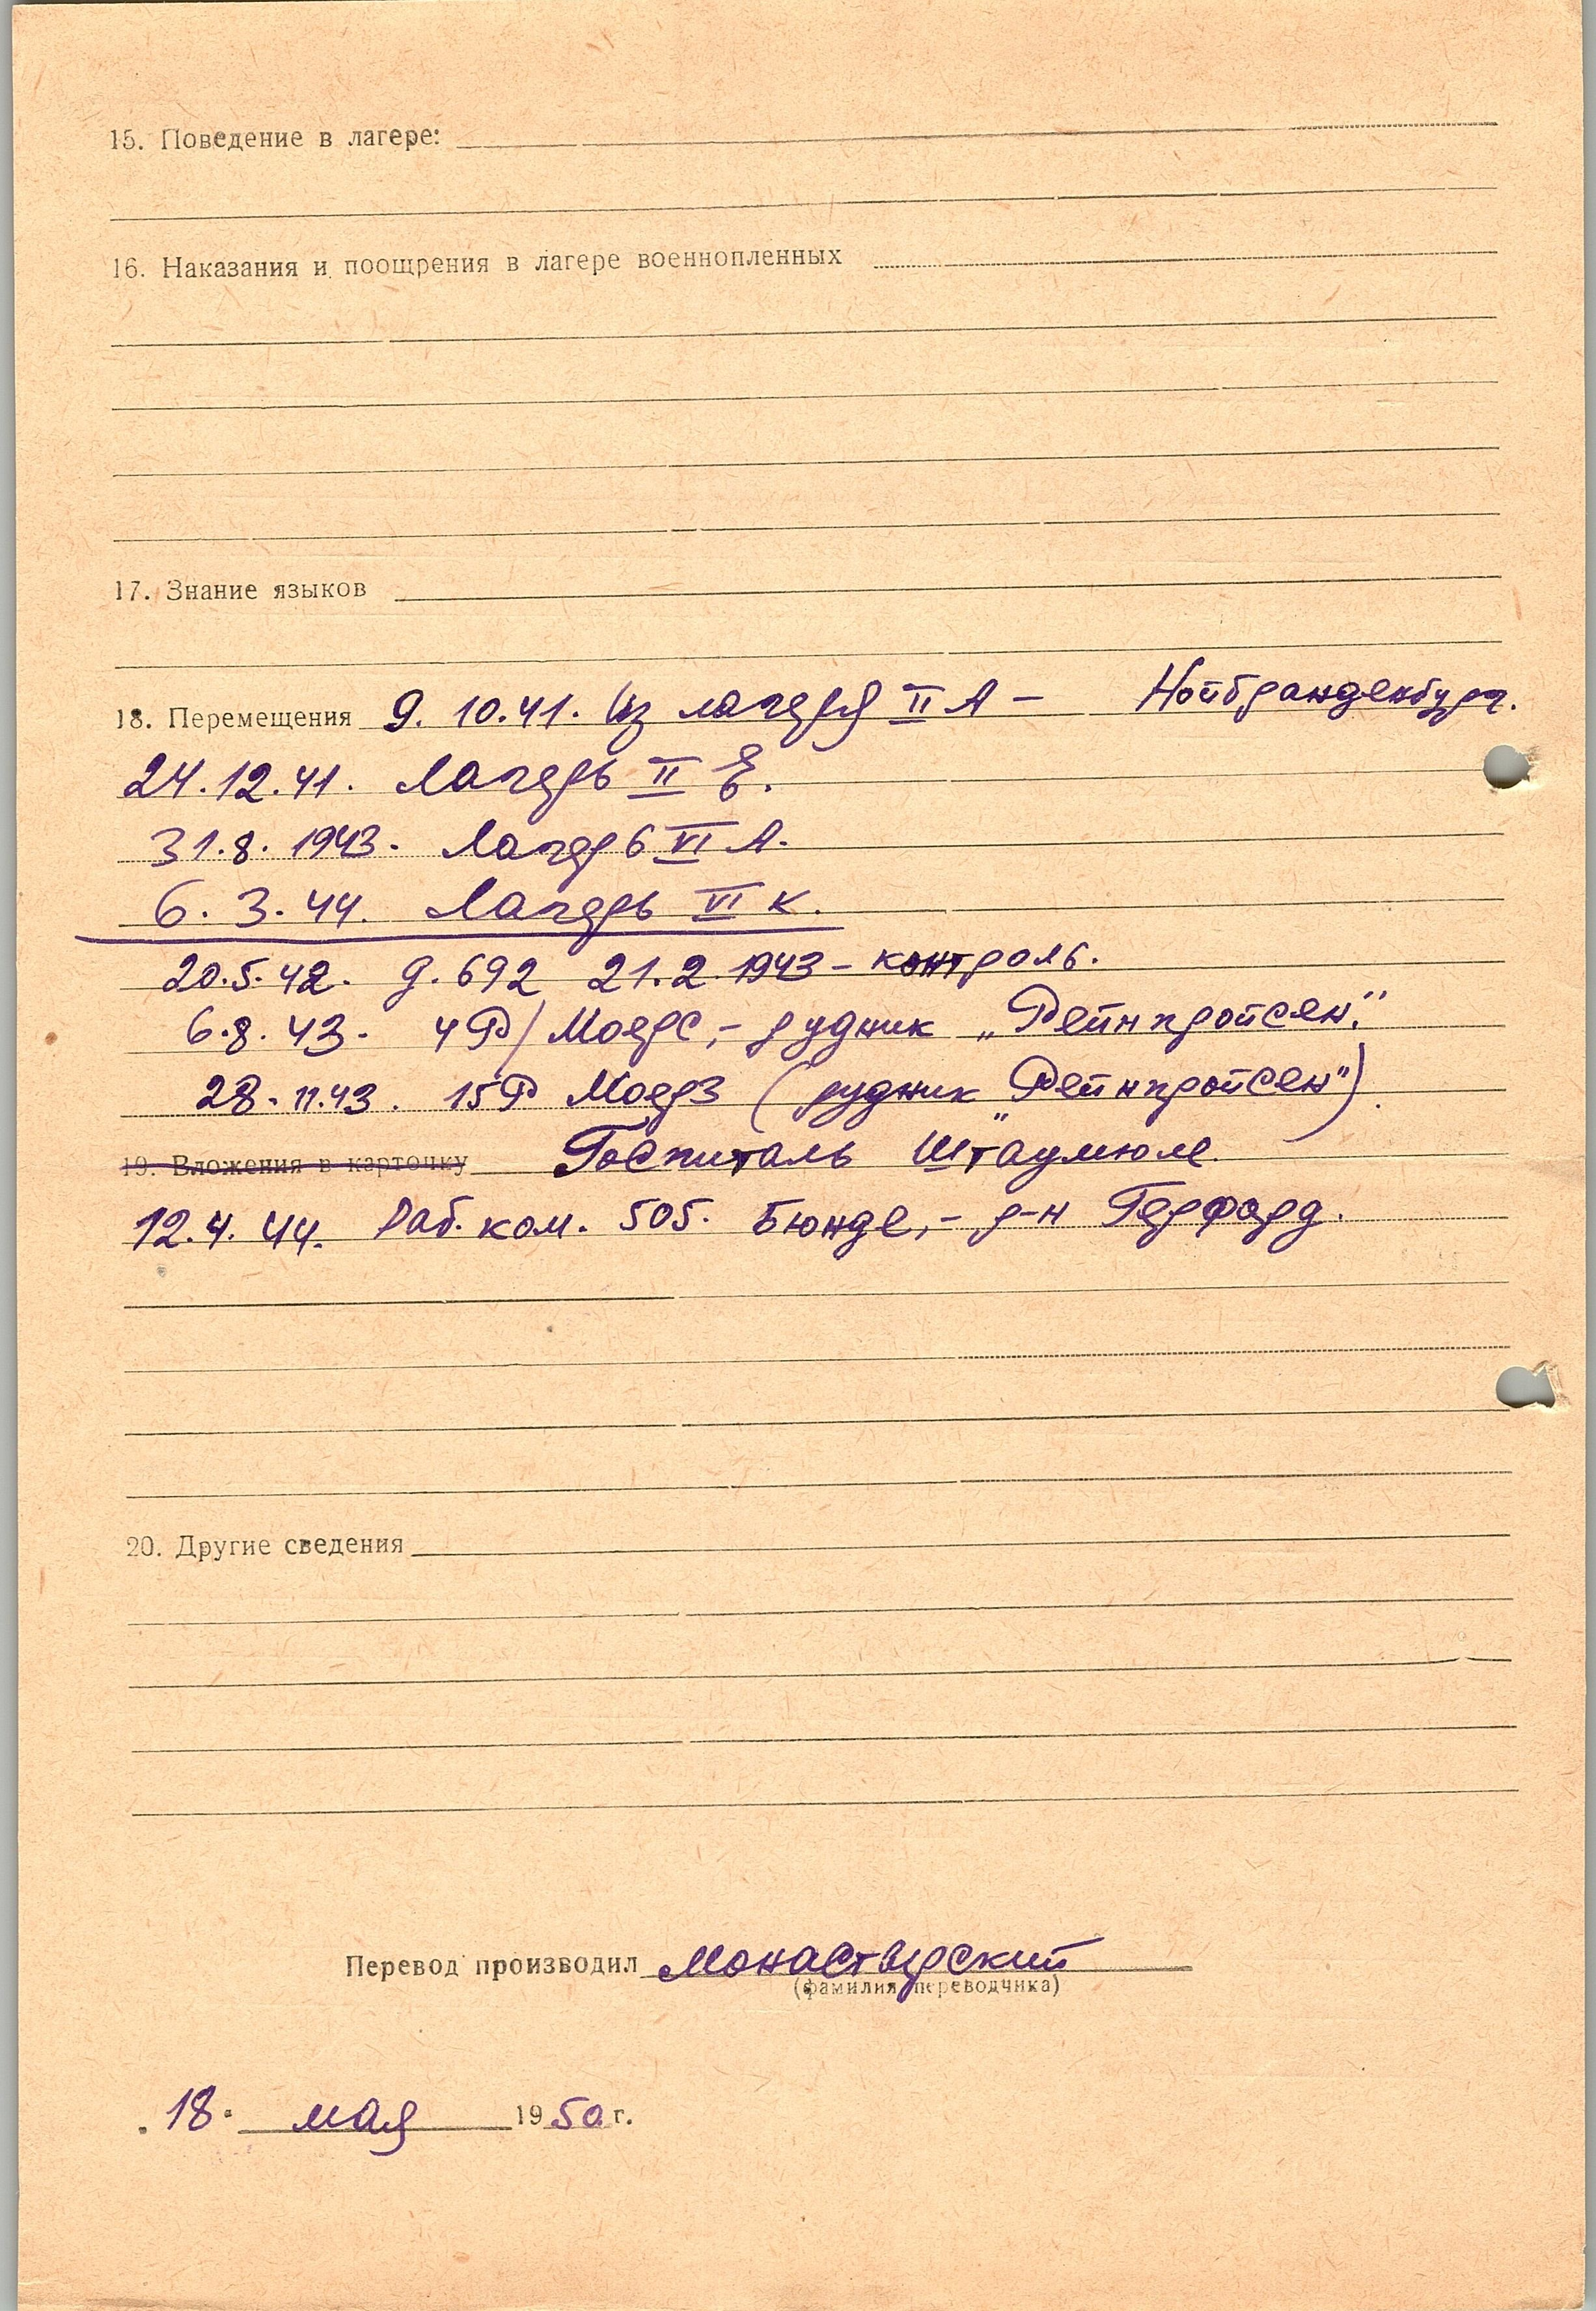 15. Поведение в лагере:
16. Наказания и поощрения в лагере военнопленных
17. Знание языков
18. Перемещения 9. 10.41. Из лагеря II А – Нойбранденбург.
24.12.41. Лагерь II Е.
31.8. 1943. Лагерь VI А.
6. 3. 44. Лагерь VI К.
20.5.42. д. 692 21.2.1943 – контроль.
6.8. 43. 4Р/Моерс, – рудник „Рейнпройсен".
28. 11.43. 15Р Моерз (рудник „Рейнпройсен").
19. Вложения в карточку Госпиталь Штаумюле.
12.4. 44. Раб. ком. 505. Бюнде, – р-н Герфорд.
20. Другие сведения
Перевод производил Монастырский
(фамилия переводчика)
18. мая 1950 г.